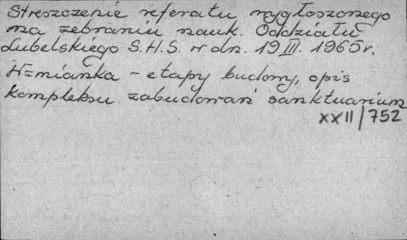 Streszczenie referatu wygłoszonego
na zebraniu nauk. Oddziału
Lubelskiego S.H.S. w dn. 19 III. 1965 r.
Wzmianka – etapy budowy, opis
kompleksu zabudowań sanktuarium
XXII/752